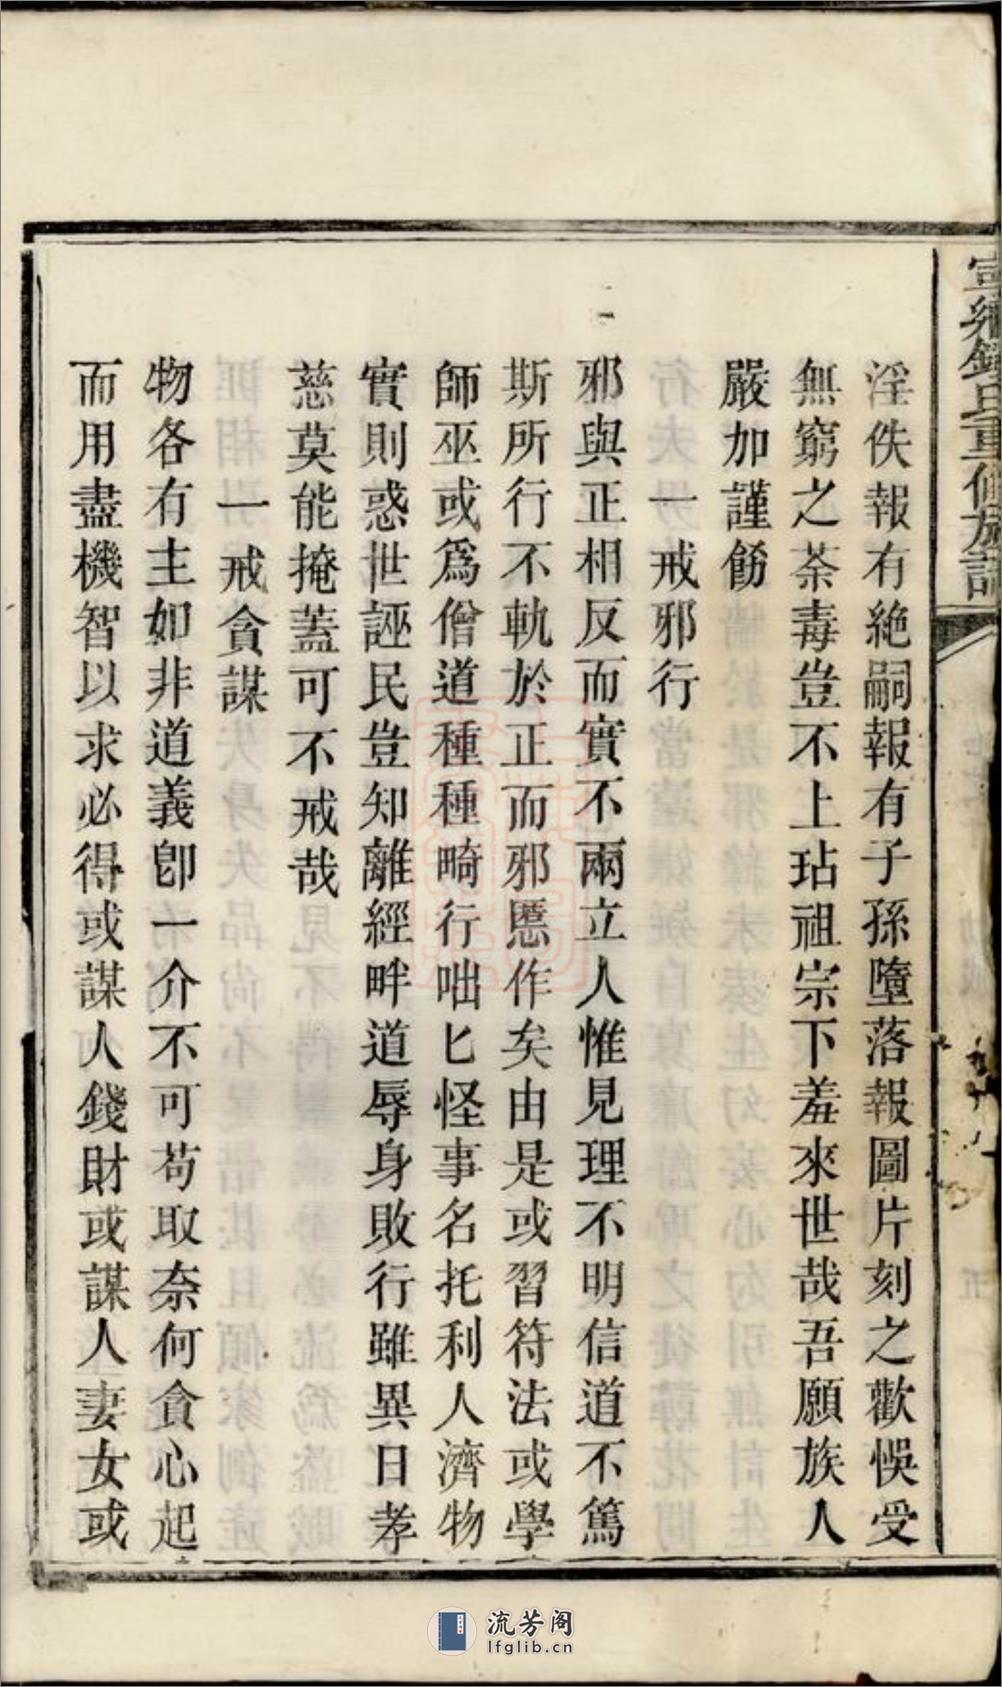 淫佚報有絶嗣報有子孫墮落報圖片刻之歡悞受
無窮之荼毒豈不上玷祖宗下羞來世哉吾願族人
嚴加謹飭
一戒邪行
邪與正相反而實不兩立人惟見理不明信道不篤
斯所行不軌於正而邪慝作矣由是或習符法或學
師巫或爲僧道種種畸行咄匕怪事名托利人濟物
實則惑世誣民豈知離經畔道辱身敗行雖異日孝
慈莫能掩蓋可不戒哉
一戒貪謀
物各有主如非道義卽一介不可苟取奈何貪心起
而用盡機智以求必得或謀人錢財或謀人妻女或
流芳阁
lfglib.cn